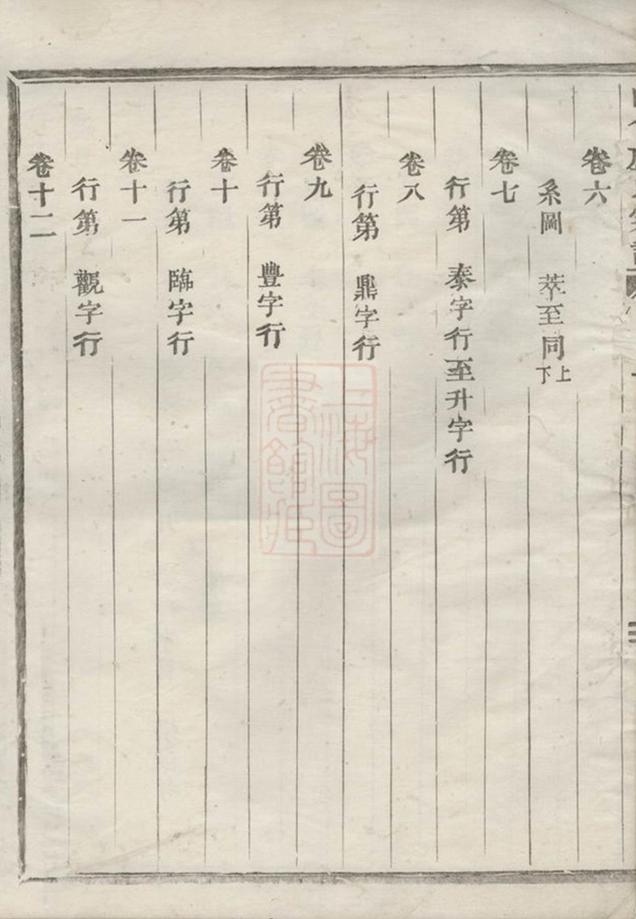 卷六
系圖 萃至同上下
卷七
行第 泰字行至升字行
卷八
行第 鼎字行
卷九
行第 豐字行
卷十
行第 臨字行
卷十一
行第 觀字行
卷十二
上海圖書館藏